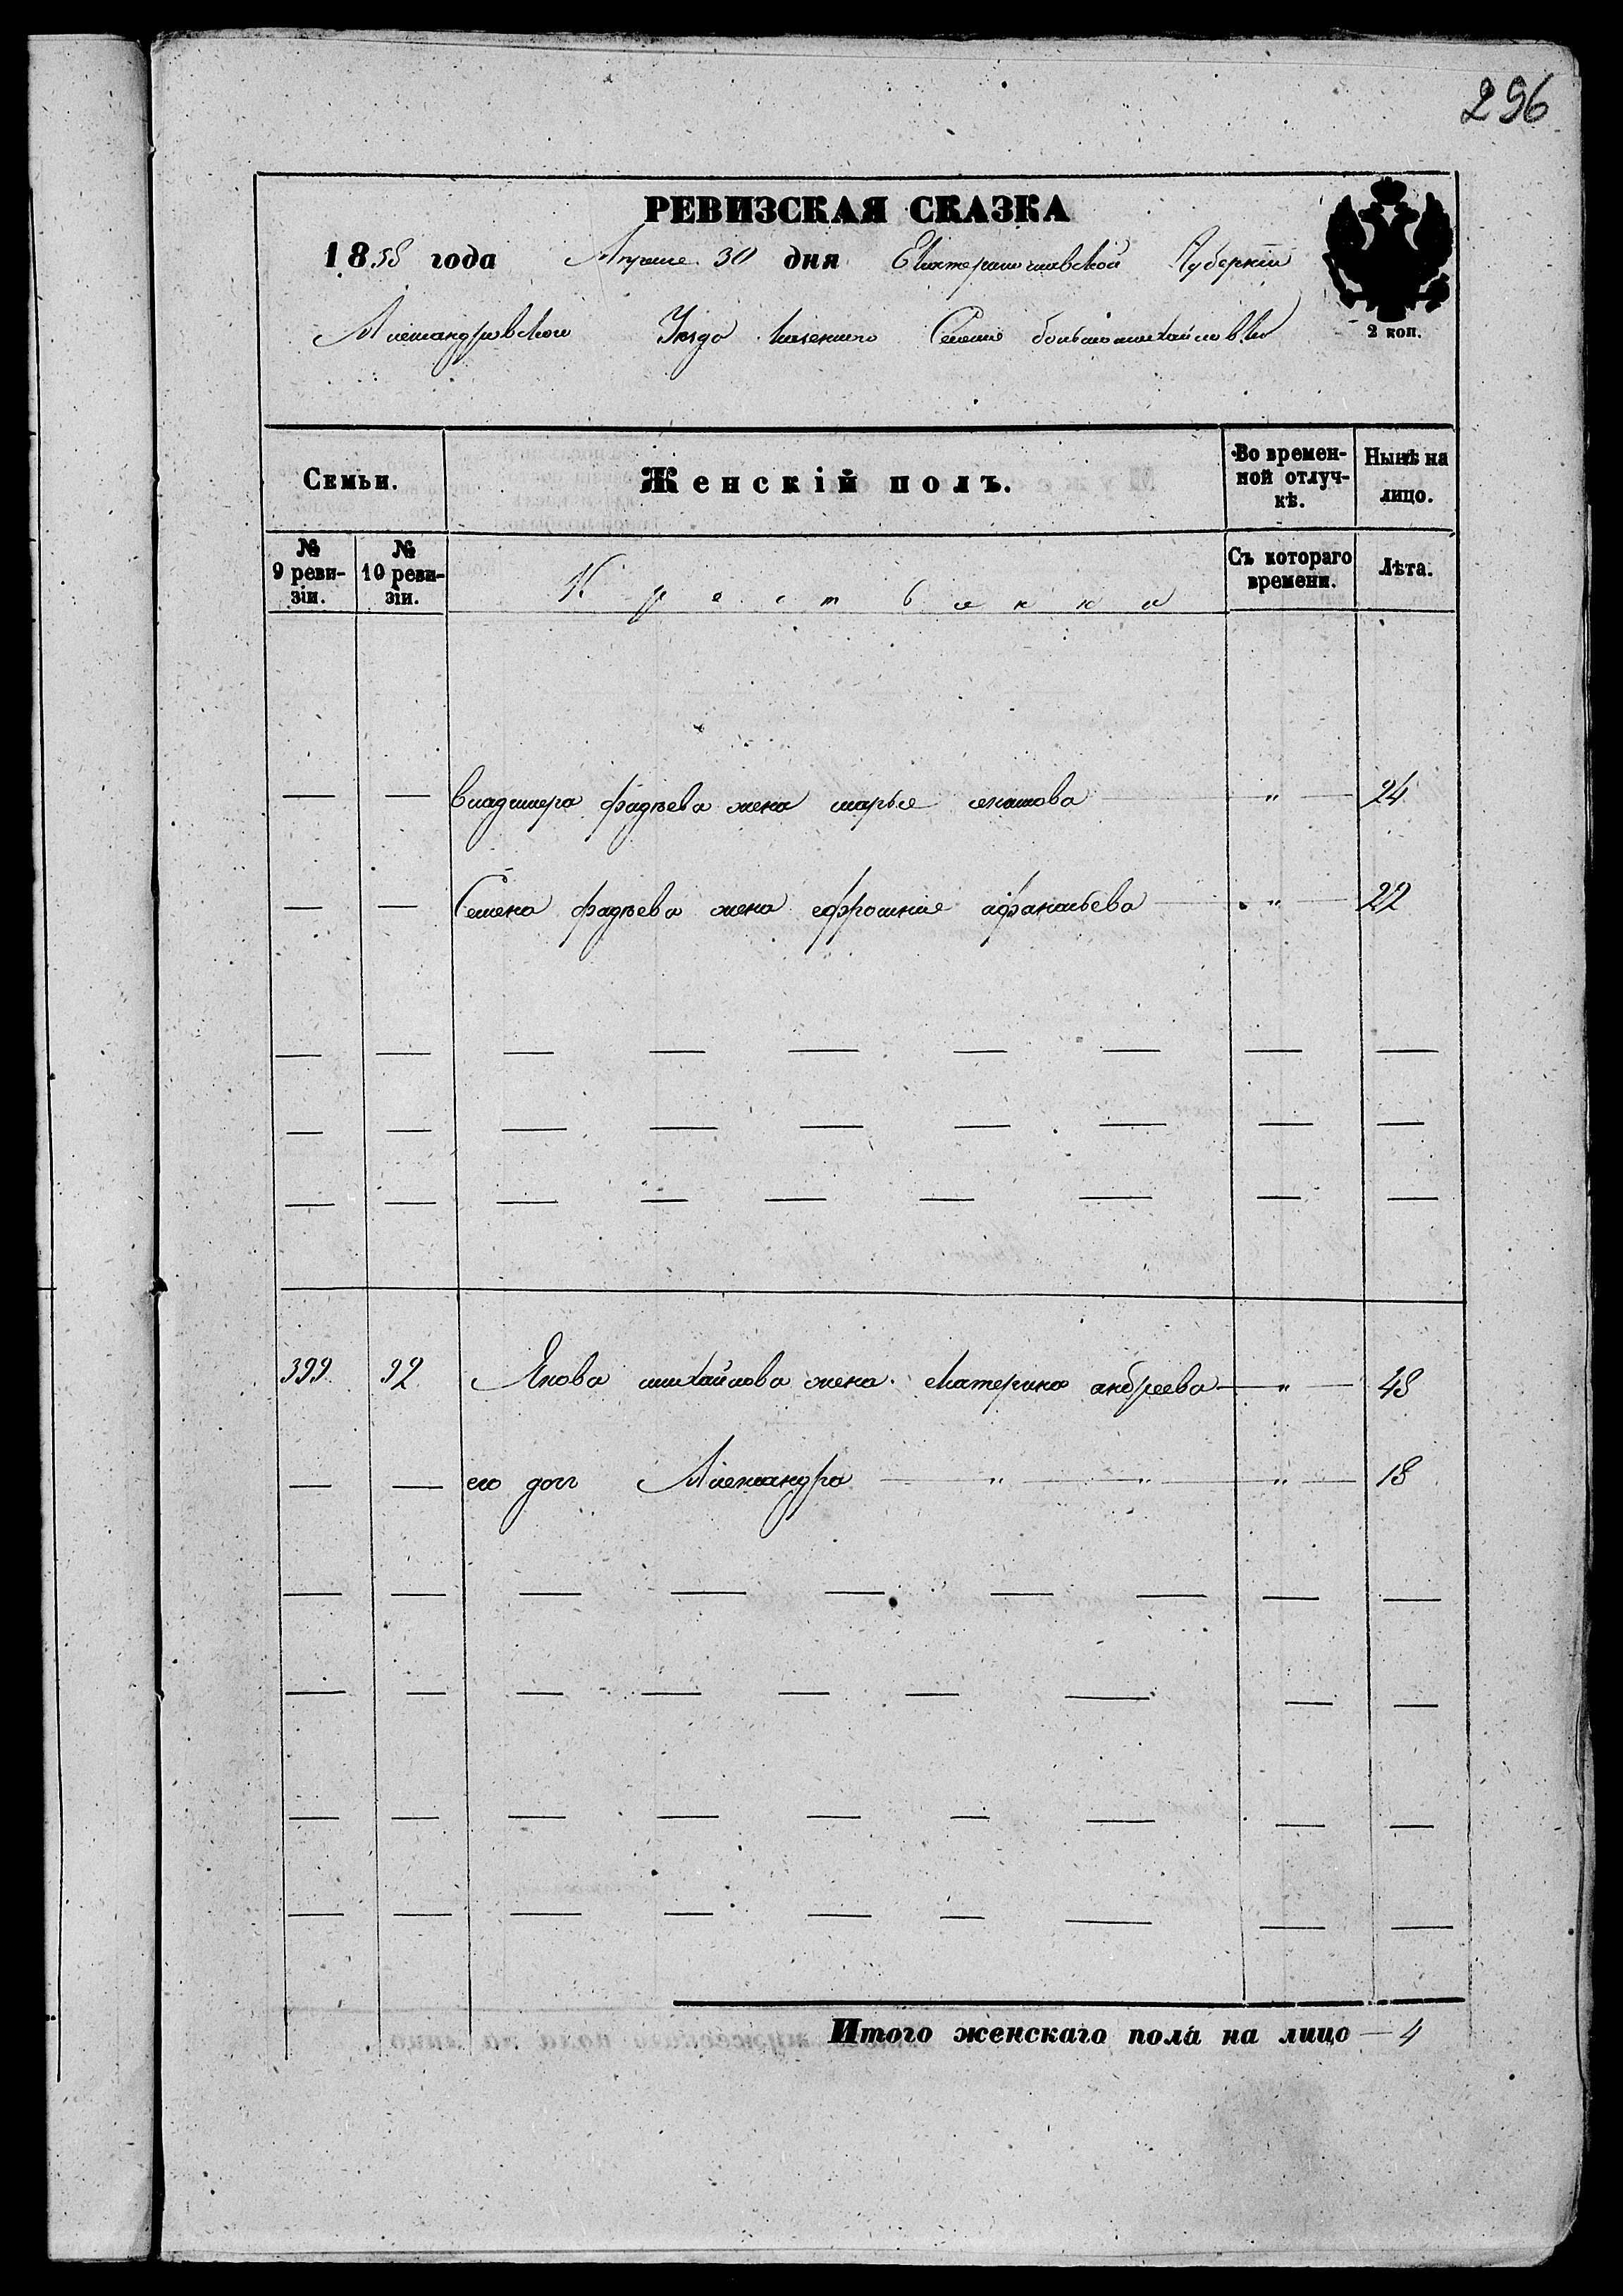 296
РЕВИЗСКАЯ СКАЗКА
1858 года Апреля 30 дня Екатеринославской Губернии
Александровского Уезда казенного Селения большомихайловки
2 коп.
Семьи. Женскій полъ. Во временной отлучкѣ. Нынѣ на лицо.
№ 9 ревизіи. № 10 ревизіи. Крестьянка Съ котораго времени. Лѣта.
— — владимера фадѣева жена марья — " — 24
— — Семена фадѣева жена ефросиния афанасьева — " — 22
399 92 Якова михайлова жена екатерина андреева — " — 48
— — его доч Александра — " — " — " — 18
Итого женскаго пола на лицо — 4